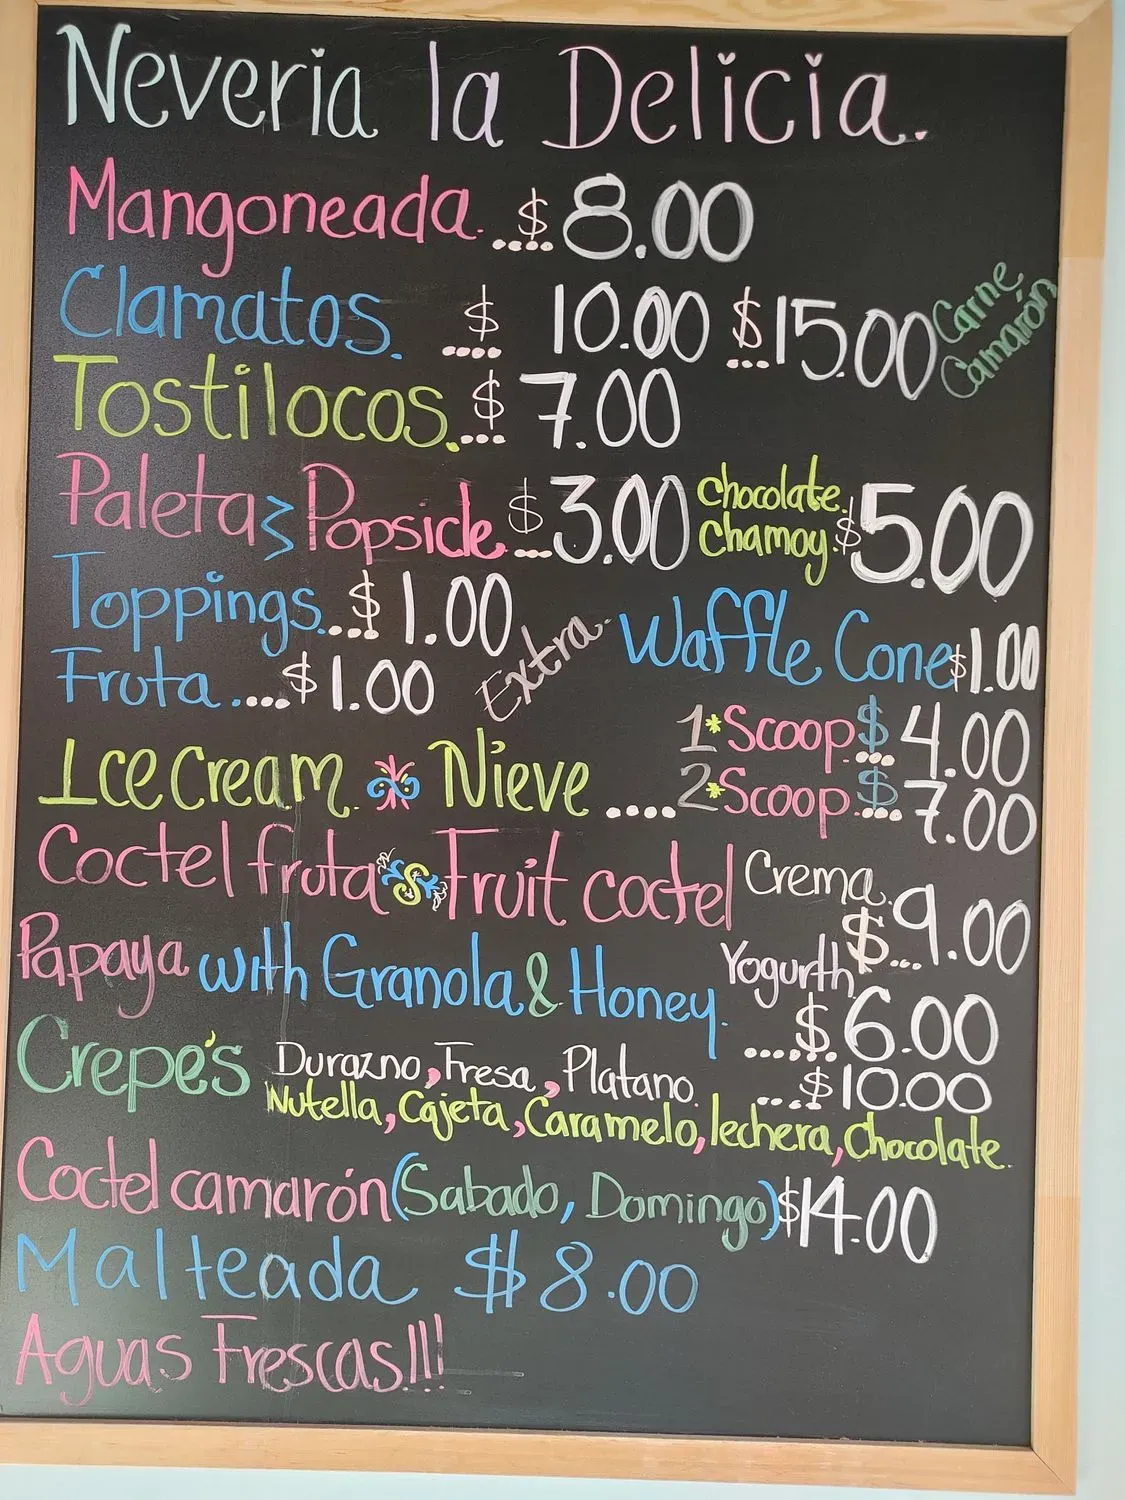 Neveria la Delicia.
Mangoneada....$8.00
Clamatos. $.... 10.00 $...15.00 Carne Camarón
Tostilocos.$.... 7.00
Paleta Popsicle $...3.00 chocolate. chamoy.$5.00
Toppings...$1.00 Extra. Waffle Cone $1.00
Fruta ....$1.00
1*Scoop $... 4.00
Ice Cream Nieve ....
2*Scoop $... 7.00
Coctel fruta Fruit coctel Crema. Yogurth $...9.00
Papaya with Granola & Honey. ......$6.00
Crepe's Durazno, Fresa, Platano. ...$10.00
Nutella, Cajeta, Caramelo, lechera, Chocolate.
Coctel camarón (Sabado, Domingo) $14.00
Malteada $8.00
Aguas Frescas!!!